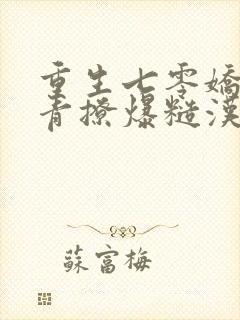 重生七零嬌
青撩爆糙漢
蘇富梅